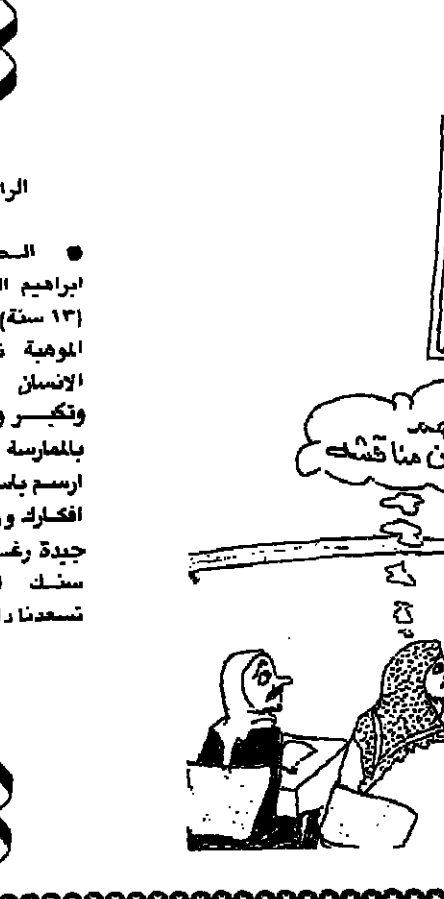 الرا
● الــص
ابراهيم ال
(١٣ سنة)
الموهبة
الانسان
وتكبــر و
بالممارسة
ارســم باس
افكــارك ور
جيدة رغــ
سنــك
تسعدنا را
ن مناقشه